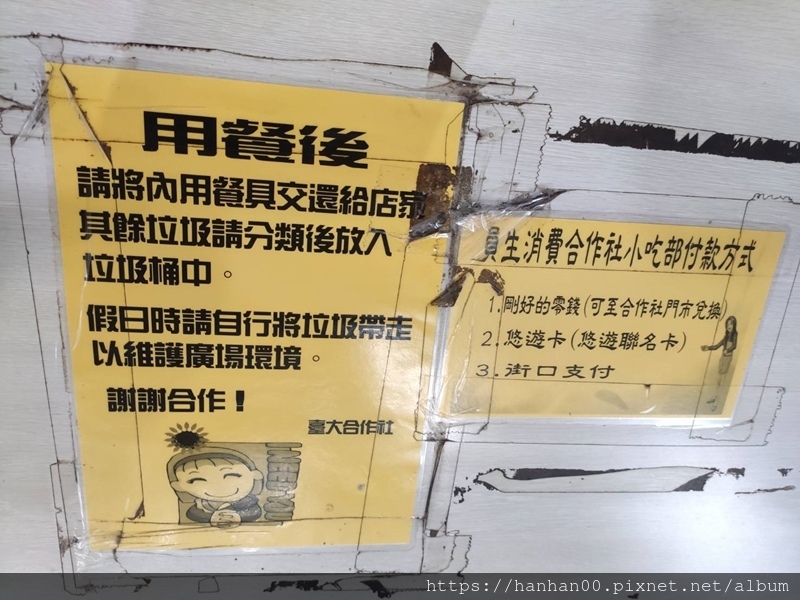 用餐後
請將內用餐具交還給店家
其餘垃圾請分類後放入
垃圾桶中。
假日時請自行將垃圾帶走
以維護廣場環境。
謝謝合作！
臺大合作社
員生消費合作社小吃部付款方式
1.剛好的零錢(可至合作社門市兌換)
2.悠遊卡(悠遊聯名卡)
3.街口支付
https://hanhan00.pixnet.net/album